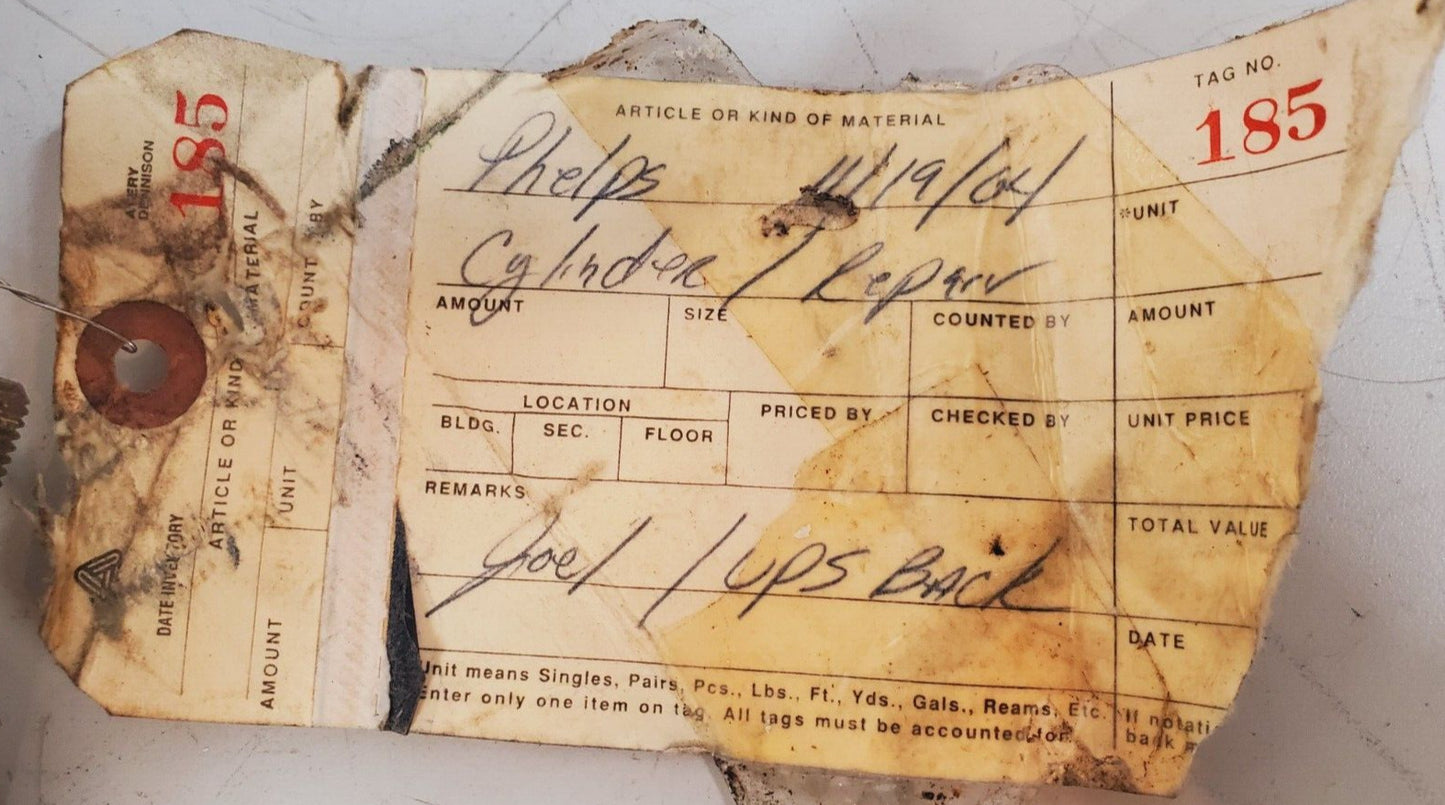 ARTICLE OR KIND OF MATERIAL
TAG NO.
185
Phelps 11/19/04
*UNIT
Cylinder / Repair
AMOUNT SIZE COUNTED BY AMOUNT
LOCATION PRICED BY CHECKED BY UNIT PRICE
BLDG. SEC. FLOOR
REMARKS
TOTAL VALUE
Joel / UPS BACK
DATE
Unit means Singles, Pairs, Pcs., Lbs., Ft., Yds., Gals., Reams, Etc.
Enter only one item on tag. All tags must be accounted for.
If notati
back
AVERY
DENNISON
185
DATE INVENTORY
ARTICLE OR KIND MATERIAL
AMOUNT UNIT COUNT BY